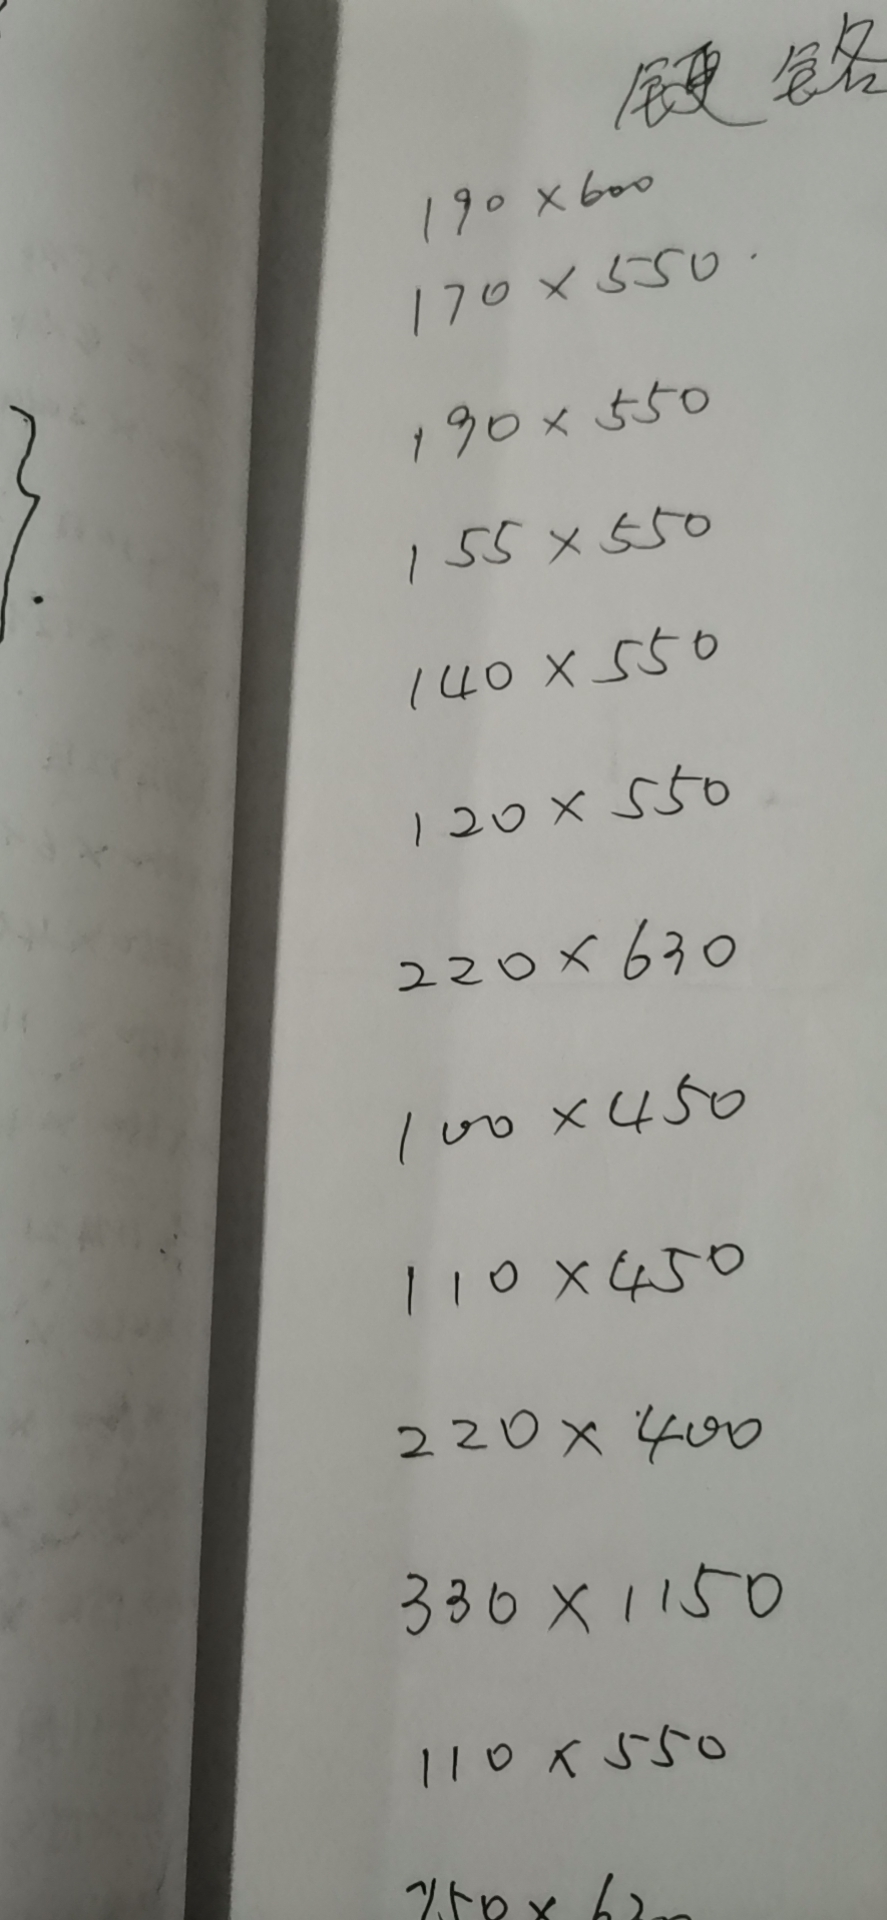 镀铬
190×600
170×550
190×550
155×550
140×550
120×550
220×630
100×450
110×450
220×400
330×1150
110×550